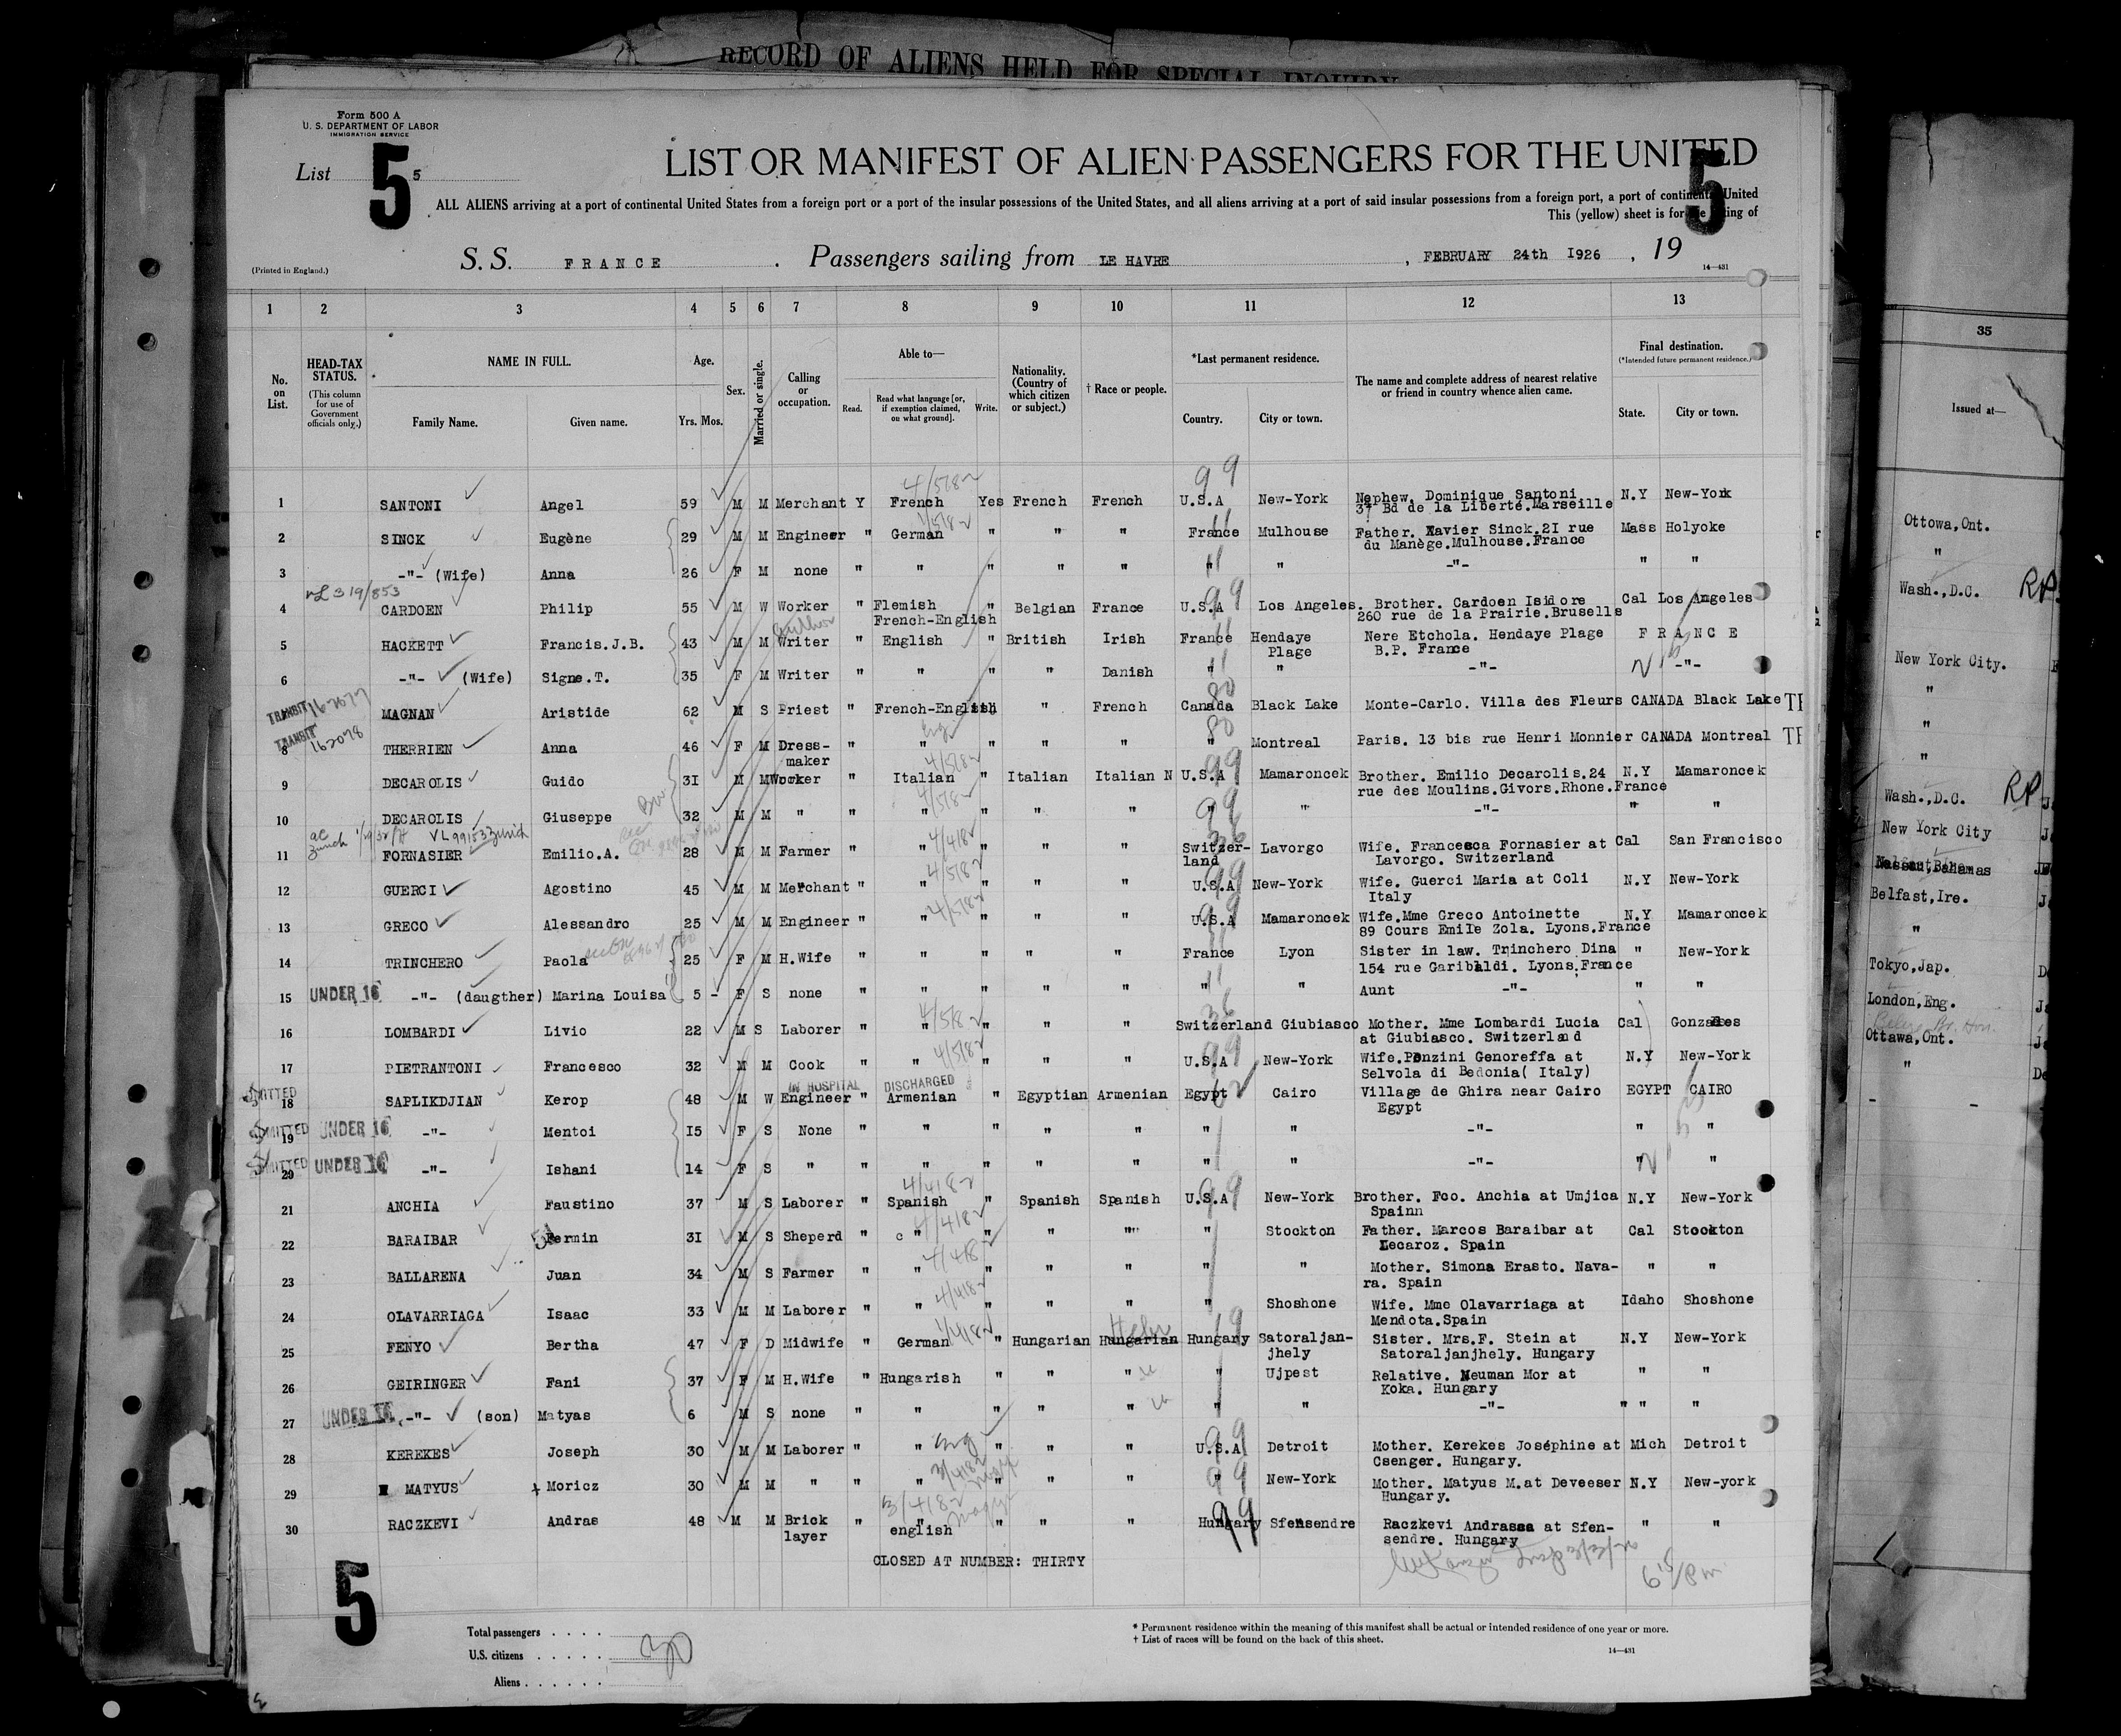 RECORD OF ALIENS HELD FOR SPECIAL INQUIRY
Form 500 A
U. S. DEPARTMENT OF LABOR
IMMIGRATION SERVICE
List 5 5
LIST OR MANIFEST OF ALIEN PASSENGERS FOR THE UNITED
5
ALL ALIENS arriving at a port of continental United States from a foreign port or a port of the insular possessions of the United States, and all aliens arriving at a port of said insular possessions from a foreign port, a port of continental United
This (yellow) sheet is for the listing of
(Printed in England.)
S. S. FRANCE . Passengers sailing from LE HAVRE , FEBRUARY 24th I926 , 19
14—431
1 2 3 4 5 6 7 8 9 10 11 12 13
No. on List.
HEAD-TAX STATUS.
(This column for use of Government officials only.)
NAME IN FULL.
Family Name. Given name.
Age.
Yrs. Mos.
Sex.
Married or single.
Calling or occupation.
Able to—
Read. Read what language [or, if exemption claimed, on what ground]. Write.
Nationality. (Country of which citizen or subject.)
† Race or people.
*Last permanent residence.
Country. City or town.
The name and complete address of nearest relative or friend in country whence alien came.
Final destination.
(*Intended future permanent residence.)
State. City or town.
1 SANTONI Angel 59 M M Merchant Y French Yes French French U.S.A New-York Nephew. Dominique Santoni N.Y New-York
37 Bd de la Liberté.Marseille
2 SINCK Eugène 29 M M Engineer " German " " " France Mulhouse Father. Xavier Sinck.2I rue Mass Holyoke
du Manège.Mulhouse.France
3 -"- (Wife) Anna 26 F M none " " " " " " " -"- " "
4 CARDOEN Philip 55 M W Worker " Flemish " Belgian France U.S.A Los Angeles. Brother. Cardoen Isidore Cal Los Angeles
French-English 260 rue de la Prairie.Brusells
5 HACKETT Francis.J.B. 43 M M Writer " English " British Irish France Hendaye Nere Etchola. Hendaye Plage FRANCE
Author Plage B.P. France
6 -"- (Wife) Signe.T. 35 F M Writer " " " " Danish " " -"- -"-
TRANSIT 162077 MAGNAN Aristide 62 M S Priest " French-English " French Canada Black Lake Monte-Carlo. Villa des Fleurs CANADA Black Lake
TRANSIT 162078 8 THERRIEN Anna 46 F M Dress- " " " " " " Montreal Paris. 13 bis rue Henri Monnier CANADA Montreal
maker
9 DECAROLIS Guido 3I M M Worker " Italian " Italian Italian N U.S.A Mamaroncek Brother. Emilio Decarolis.24 N.Y Mamaroncek
rue des Moulins.Givors.Rhone.France
10 DECAROLIS Giuseppe 32 M M " " " " " " " " -"- " "
11 FORNASIER Emilio.A. 28 M M Farmer " " " " " Switzer- Lavorgo Wife. Francesca Fornasier at Cal San Francisco
land Lavorgo. Switzerland
12 GUERCI Agostino 45 M M Merchant " " " " " U.S.A New-York Wife. Guerci Maria at Coli N.Y New-York
Italy
13 GRECO Alessandro 25 M M Engineer " " " " " U.S.A Mamaroncek Wife.Mme Greco Antoinette N.Y Mamaroncek
89 Cours Emile Zola. Lyons.France
14 TRINCHERO Paola 25 F M H.Wife " " " " " France Lyon Sister in law. Trinchero Dina " New-York
154 rue Garibaldi. Lyons.France
15 UNDER 16 -"- (daugther) Marina Louisa 5 - F S none " " " " " " " Aunt -"- " "
16 LOMBARDI Livio 22 M S Laborer " " " " " Switzerland Giubiasco Mother. Mme Lombardi Lucia Cal Gonzales
at Giubiasco. Switzerland
17 PIETRANTONI Francesco 32 M M Cook " " " " " U.S.A New-York Wife.Penzini Genoreffa at N.Y New-York
Selvola di Bedonia( Italy)
IN HOSPITAL DISCHARGED
ADMITTED 18 SAPLIKDJIAN Kerop 48 M W Engineer " Armenian " Egyptian Armenian Egypt Cairo Village de Ghira near Cairo EGYPT CAIRO
Egypt
ADMITTED 19 UNDER 16 -"- Mentoi I5 F S None " " " " " " " -"- " "
ADMITTED 20 UNDER 16 -"- Ishani 14 F S " " " " " " " " -"- " "
21 ANCHIA Faustino 37 M S Laborer " Spanish " Spanish Spanish U.S.A New-York Brother. Fco. Anchia at Umjica N.Y New-York
Spainn
22 BARAIBAR Fermin 3I M S Sheperd " " " " " " Stockton Father. Marcos Baraibar at Cal Stockton
Lecaroz. Spain
23 BALLARENA Juan 34 M S Farmer " " " " " " " Mother. Simona Erasto. Nava- " "
ra. Spain
24 OLAVARRIAGA Isaac 33 M M Laborer " " " " " " Shoshone Wife. Mme Olavarriaga at Idaho Shoshone
Mendota.Spain
25 FENYO Bertha 47 F D Midwife " German " Hungarian Hungarian Hungary Satoraljan- Sister. Mrs.F. Stein at N.Y New-York
jhely Satoraljanjhely. Hungary
26 GEIRINGER Fani 37 F M H.Wife " Hungarish " " " " Ujpest Relative. Neuman Mor at " "
Koka. Hungary
27 UNDER 16 -"- (son) Matyas 6 M S none " " " " " " " -"- " " "
28 KEREKES Joseph 30 M M Laborer " " " " " U.S.A Detroit Mother. Kerekes Joséphine at Mich Detroit
Csenger. Hungary.
29 MATYUS Moricz 30 M M " " " " " " " New-York Mother. Matyus M.at Deveeser N.Y New-york
Hungary.
30 RACZKEVI Andras 48 M M Brick " " " " " Hungary Sfensendre Raczkevi Andrassa at Sfen- " "
layer english sendre. Hungary
CLOSED AT NUMBER: THIRTY
5
Total passengers . . . .
U.S. citizens . . . . . 30
Aliens . . . . . .
* Permanent residence within the meaning of this manifest shall be actual or intended residence of one year or more.
† List of races will be found on the back of this sheet.
14—431
35
Issued at—
Ottowa,Ont.
"
Wash.,D.C.
New York City.
"
"
"
Wash.,D.C.
New York City
Nassau,Bahamas
Belfast,Ire.
"
Tokyo,Jap.
London,Eng.
Ottawa,Ont.
"
- -